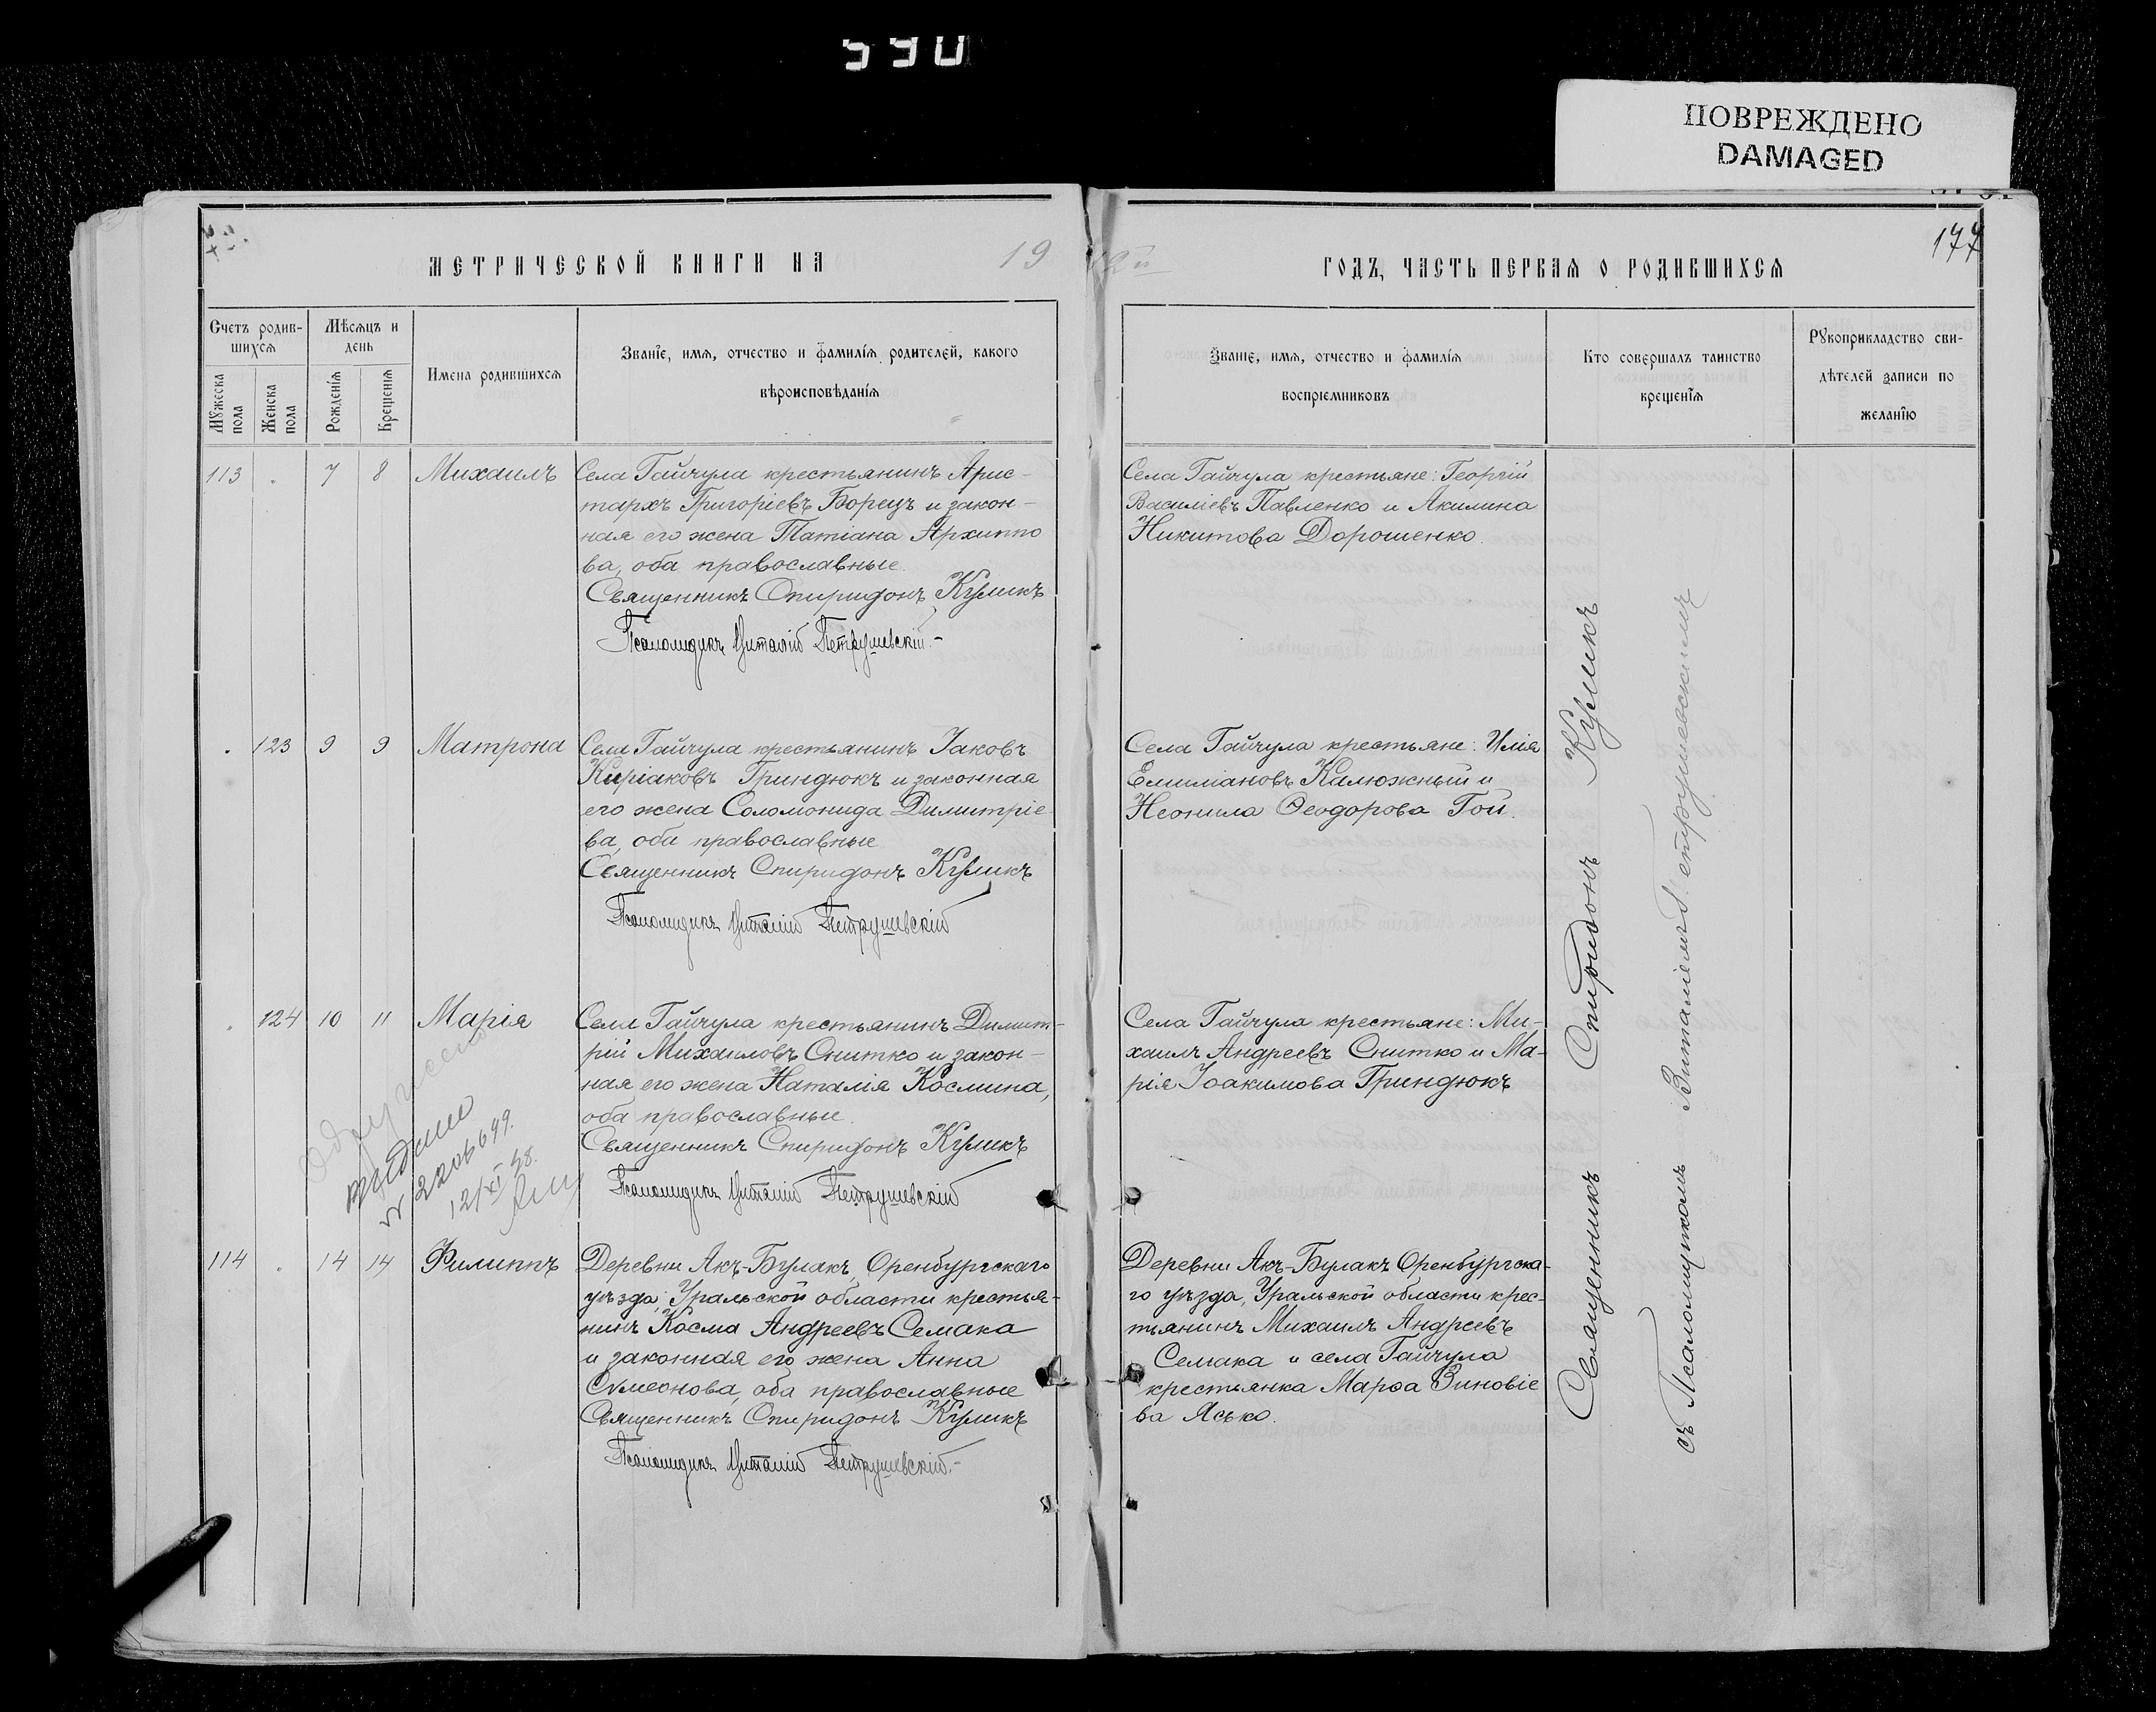 590
ПОВРЕЖДЕНО
DAMAGED
177
МЕТРИЧЕСКОЙ КНИГИ НА 19
12й ГОДЪ, ЧАСТЬ ПЕРВАЯ О РОДИВШИХСЯ
Счетъ родив-
шихся
Мужеска пола
Женска пола
Мѣсяцъ и
день
Рожденія
Крещенія
Имена родившихся
Званіе, имя, отчество и фамилія родителей, какого
вѣроисповѣданія
Званіе, имя, отчество и фамилія
воспріемниковъ
Кто совершалъ таинство
крещенія
Рукоприкладство сви-
дѣтелей записи по
желанію
113 . 7 8 Михаилъ
Села Гайчула крестьянинъ Арис-
тархъ Григоріевъ Борецъ и закон-
ная его жена Татіана Архиппо
ва, оба православные.
Священникъ Спиридонъ Куликъ
Псаломщикъ Виталій Петрушевскій.-
Села Гайчула крестьяне: Георгій
Василіевъ Павленко и Акилина
Никитова Дорошенко.
. 123 9 9 Матрона
Села Гайчула крестьянинъ Іаковъ
Киріаковъ Гриндюкъ и законная
его жена Соломонида Димитріе
ва, оба православные
Священникъ Спиридонъ Куликъ
Псаломщикъ Виталій Петрушевскій
Села Гайчула крестьяне: Илія
Емиліановъ Калюжный и
Неонила Ѳеодорова Гой.
. 124 10 11 Марія
Села Гайчула крестьянинъ Димит-
рій Михаиловъ Снитко и закон-
ная его жена Наталія Космина,
оба православные.
Священникъ Спиридонъ Куликъ
Псаломщикъ Виталій Петрушевскій
Села Гайчула крестьяне: Ми-
хаилъ Андреевъ Снитко и Ма-
рія Іоакимова Гриндюкъ
выдано
12/XI 48.
114 . 14 14 Филиппъ
Деревни Акъ-Булакъ, Оренбургскаго
уѣзда, Уральской области крестья-
нинъ Косма Андреевъ Семака
и законная его жена Анна
Сѵмеонова, оба православные
Священникъ Спиридонъ Куликъ
Псаломщикъ Виталій Петрушевскій.-
Деревни Акъ-Булакъ Оренбургска-
го уѣзда, Уральской области крес-
тьянинъ Михаилъ Андреевъ
Семака и села Гайчула
крестьянка Марѳа Зиновіе
ва Ясько.
Священникъ Спиридонъ Куликъ
съ Псаломщикомъ Виталіемъ Петрушевскимъ